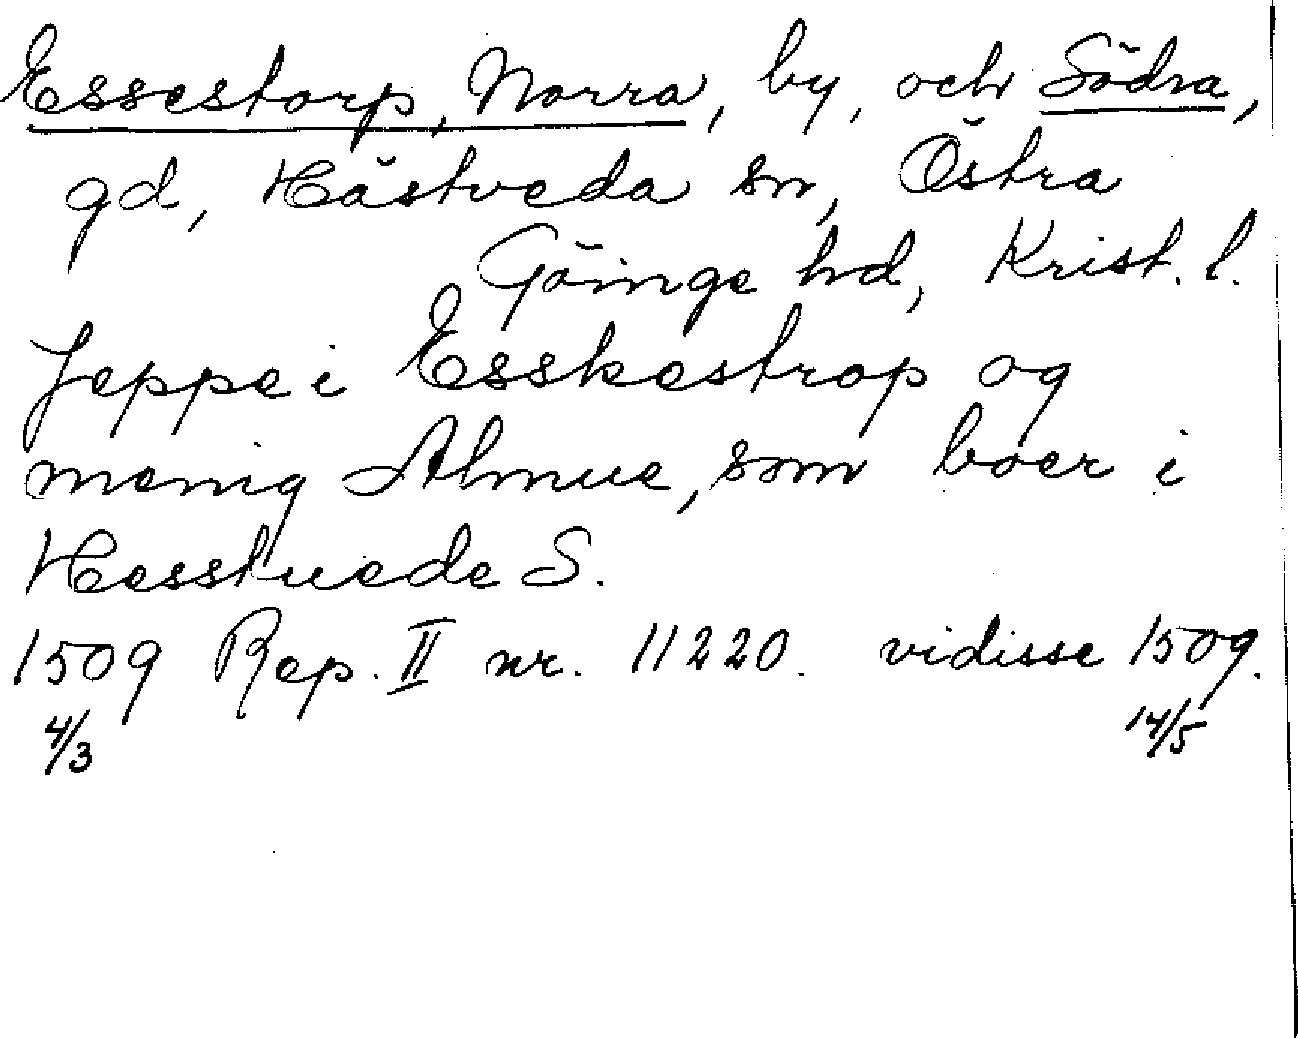 Essestorp, Norra, by, och Södra,
gd, Hästveda sn, Östra
Göinge hd, Krist. l.
Jeppe i Esskestrop og
menig Almue, som boer i
Hesstuede S.
1509 Rep. II nr. 11220. vidisse 1509.
4/3 14/5